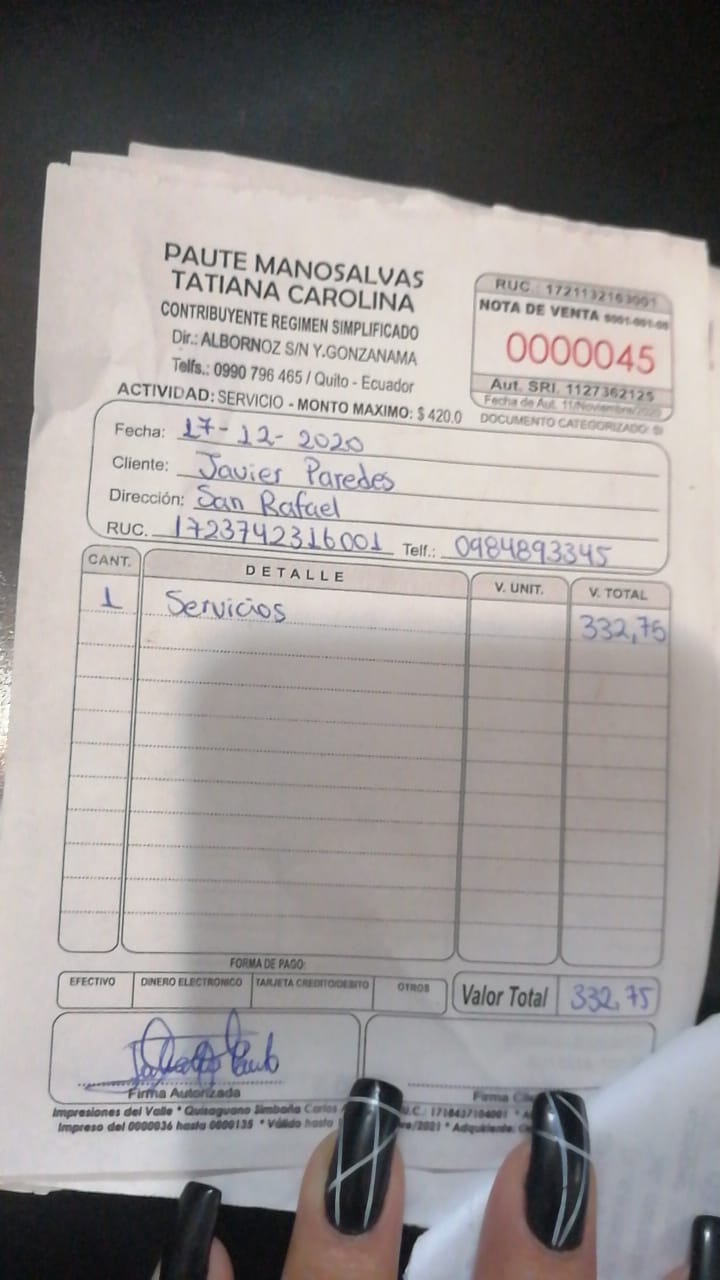 PAUTE MANOSALVAS
TATIANA CAROLINA
CONTRIBUYENTE REGIMEN SIMPLIFICADO
Dir.: ALBORNOZ S/N Y.GONZANAMA
Telfs.: 0990 796 465 / Quito - Ecuador
ACTIVIDAD: SERVICIO - MONTO MAXIMO: $ 420.0
RUC : 1721132163001
NOTA DE VENTA S001-001-00
0000045
Aut. SRI. 1127362125
Fecha de Aut. 11/Noviembre/2020
DOCUMENTO CATEGORIZADO: SI
Fecha: 17-12-2020
Cliente: Javier Paredes
Dirección: San Rafael
RUC. 1723742316001 Telf.: 0984893345
CANT. DETALLE V. UNIT. V. TOTAL
1 Servicios 332,75
FORMA DE PAGO:
EFECTIVO DINERO ELECTRONICO TARJETA CREDITO/DEBITO OTROS Valor Total 332,75
Firma Autorizada Firma
Impresiones del Valle * Quisaguano Simbaña Carlos U.C.: 1718437104001 *
Impreso del 0000036 hasta 0000135 * Válido hasta /2021 * Adquirente: